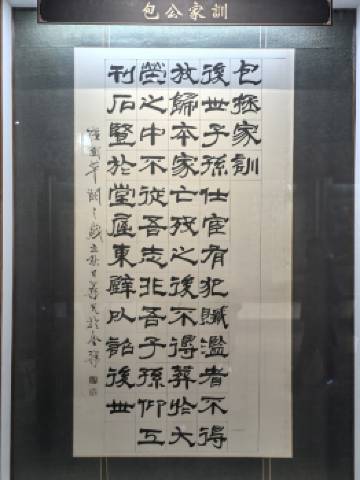 包公家訓
包拯家訓
後世子孫仕宦有犯贓濫者不得
放歸本家亡歿之後不得葬於大
塋之中不從吾志非吾子孫仰工
刊石豎於堂屋東壁以詔後世